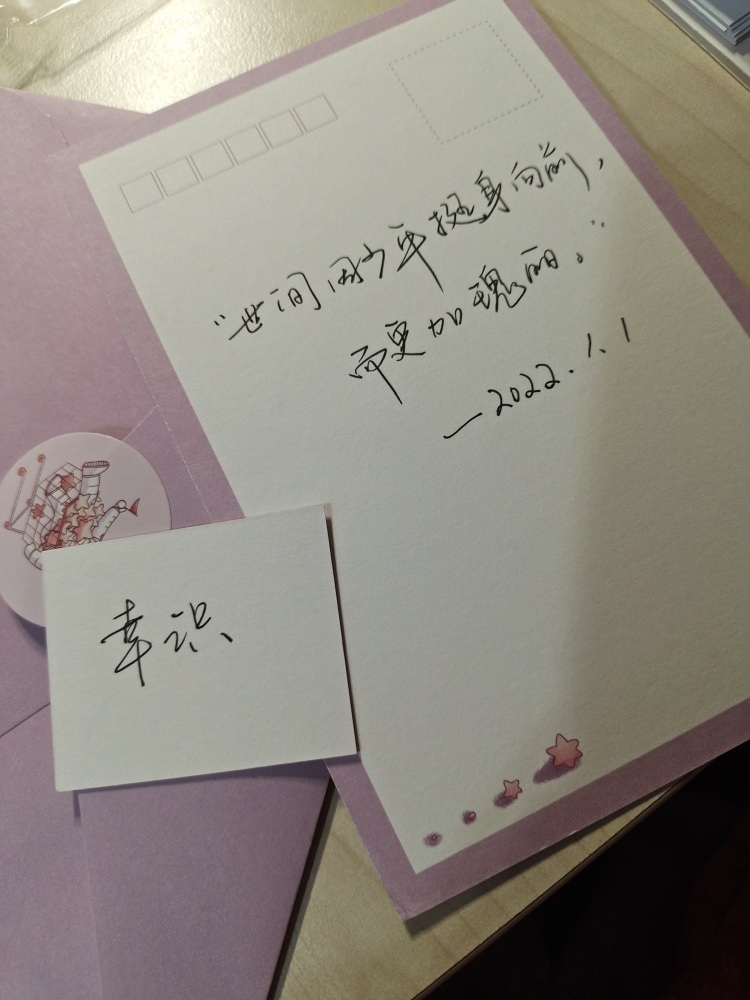 “世间因少年挺身向前,
而更加瑰丽。”
—2022.1.1
幸识